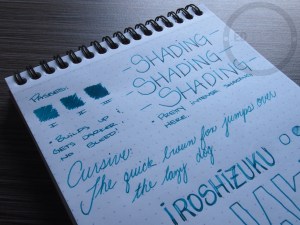 PASSES:
SHADING
SHADING
SHADING
I II III
• BUILDS UP !
GETS DARKER
NO BLEED!
• PRETTY INTENSE SHADING
HERE
Cursive:
The quick brown fox jumps over
the lazy dog.
IROSHIZUKU